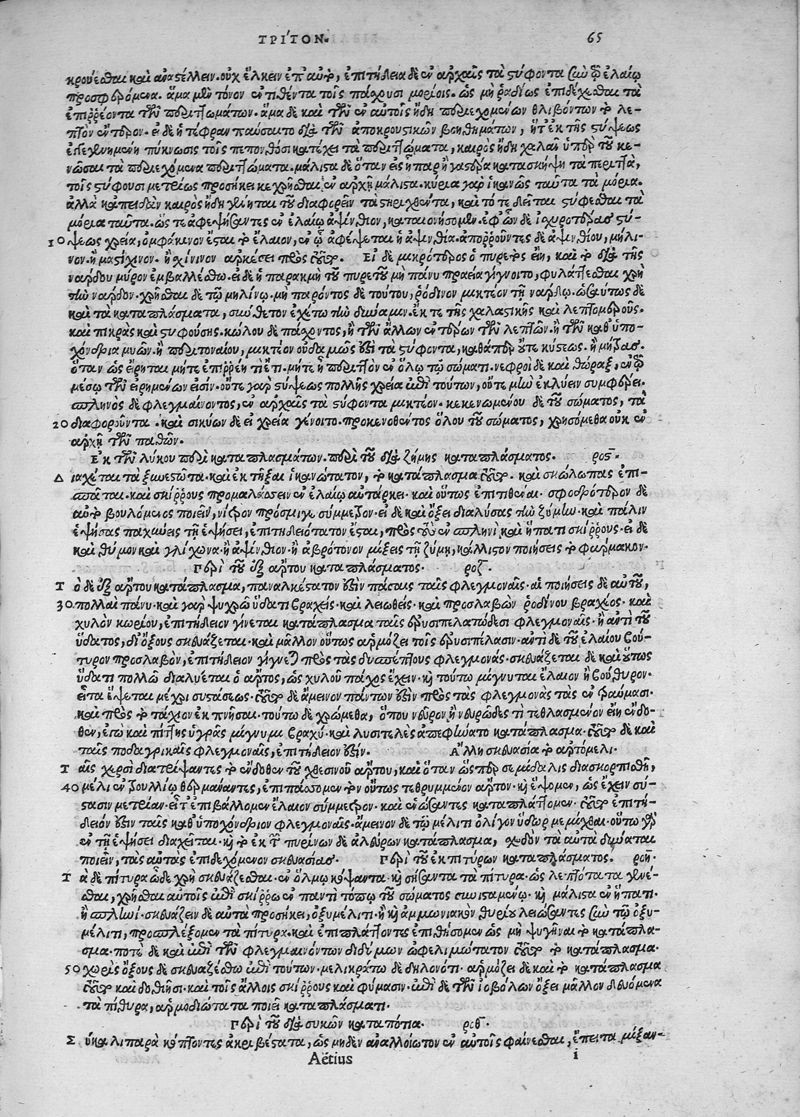 ΤΡΙΤΟΝ. 65
κρούεσθαι καὶ ἀναστέλλειν. οὐχ ἕλκειν ἐπ' αὐτὸ, ἐπιτήδεια δὲ ἐν ἀρχαῖς τὰ στύφοντα σὺν τῷ ἐλαίῳ
προσφερόμενα. ἅμα μὲν τόνον ἐντιθέντα τοῖς πάσχουσι μορίοις. ὡς μὴ ῥᾳδίως ἐπιδέχεσθαι τὰ
ἐπιρρέοντα τῶν περιττωμάτων. ἅμα δὲ καὶ τῶν ἐν αὐτοῖς ἤδη περιεχομένων θλιβόντων τὸ λε-
πτὸν
ἐπιγινομένη πύκνωσις τοῖς πεπονθόσι κατέχει τὰ περιττώματα, καιρὸς ἤδη χαλᾶν ὑπὲρ τοῦ κε-
νῶσαι τὰ περιεχόμενα περιττώματα. μάλιστα δὲ ὅταν εἰς ἧπαρ ἢ γαστέρα κατασκήψῃ τὰ περιττὰ,
τοῖς στύφουσι μετρίως προσήκει κεχρῆσθαι ἐν ἀρχῇ μάλιστα. κύρια γὰρ ἱκανῶς ταῦτα τὰ μόρια.
ἀλλὰ κἀπειδὰν καιρὸς ἤδη γίνηται τοῦ διαφορεῖν τὰ στηριχθέντα, καὶ τότε δεῖται στύφεσθαι τὰ
μόρια ταῦτα. ὥστε ἀφεψήσαντες ἐν ἐλαίῳ ἀψίνθιον, καταιονήσομεν. ἐφ' ὧν δὲ ἰσχυροτέρας στύ-
10 ψεως χρεία, ὀμφάκινον ἔσται τὸ ἔλαιον, ἐν ᾧ ἀφέψεται ἡ ἀψινθία. ἀποροῦντες δὲ ἀψινθίου, μήλι-
νον. ἢ μαστίχινον. ἢ σχίνινον ἀρκέσει πρὸς τοῦτο. Εἰ δὲ μικρότερος ὁ πυρετὸς εἴη, καὶ τὸ διὰ τῆς
νάρδου μύρον ἐμβαλλέσθω. εἰ δὲ ἡ παρακμὴ τοῦ πυρετοῦ μὴ πάνυ πραεῖα γίγνοιτο, φυλάττεσθαι χρὴ
τὴν νάρδον. χρῆσθαι δὲ τῷ μηλίνῳ. μὴ παρόντος δὲ τούτου, ῥόδινον μικτέον τῇ νάρδῳ. ὡσαύτως δὲ
καὶ τὰ καταπλάσματα, σύνθετον ἐχέτω τὴν δύναμιν. ἔκ τε τῆς χαλαστικῆς καὶ λεπτομεροῦς.
καὶ πικρᾶς καὶ στυφούσης. κώλου δὲ πάσχοντος, ἢ τῶν ἄλλων ἐντέρων τῶν λεπτῶν. ἢ τῶν καθ' ὑπο-
χόνδρια μυῶν. ἢ περιτοναίου, μικτέον οὐδαμῶς ἐστι τὰ στύφοντα, καθάπερ οὔτε κύστεως. ἢ μήτρας.
ὅταν ὡς εἴρηται μήτε ἐπιρρέῃ τι ἔτι. μήτε ἢ ἐν ὅλῳ τῷ σώματι. νεφροὶ δὲ καὶ θώραξ, ἐν τῷ
μέσῳ τῶν εἰρημένων εἰσίν. οὔτε γὰρ στύψεως πολλῆς χρεία ἐπὶ τούτων, οὔτε μὴν ἐκλύειν συμφέρει.
σπληνὸς δὲ φλεγμαίνοντος, ἐν ἀρχαῖς τὰ στύφοντα μικτέον. κεκενωμένου δὲ τοῦ σώματος, τὰ
20 διαφοροῦντα. καὶ σικύων δὲ εἰ χρεία γένοιτο. προκενωθέντος ὅλου τοῦ σώματος, χρησόμεθα οὐκ ἐν
ἀρχῇ τῶν παθῶν.
Ἐκ τῶν λύκου περὶ καταπλασμάτων. περὶ τοῦ διὰ ζύμης καταπλάσματος. ροϛ.
Δ ιαχεῖται τὰ ξυνεστῶτα. καὶ ἐκτῆξαι ἱκανώτατον, τὸ κατάπλασμα τοῦτο. καὶ σκώλωπας ἐπι-
σπᾶται. καὶ σκίρρους προμαλάσσειν ἐν ἐλαίῳ αὐτάρκει. καὶ οὕτως ἐπιτιθέναι. σφοδρότερον δὲ
αὐτὸ βουλόμενος ποιεῖν, νίτρον πρόσμιγε σύμμετρον. εἰ δὲ καὶ ὄξει διαλύσας τὴν ζύμην. καὶ πάλιν
ἑψήσας παχυνεῖς τῇ ἑψήσει, ἐπιτηδειότατον ἔσται, πρὸς τοὺς ἐν σπληνὶ καὶ ἥπατι σκίρρους. εἰ δὲ
καὶ θύμον καὶ γλίχωνα. ἢ ἀψίνθιον. ἢ ἀβρότονον μίξεις τῇ ζύμῃ, κάλλιστον ποιήσεις τὸ φάρμακον.
Περὶ τοῦ ἐξ ἄρτου καταπλάσματος. ροζ.
Τ ὸ δὲ ἐξ ἄρτου κατάπλασμα, παναλκέστατον ἐστὶν πάσαις ταῖς φλεγμοναῖς. αἱ ποιήσεις δὲ αὐτοῦ,
30 πολλαὶ πάνυ. καὶ γὰρ ψυχρῷ ὕδατι βραχεὶς. καὶ λειωθεὶς. καὶ προσλαβὼν ῥοδίνου βραχέος. καὶ
χυλὸν κωρίου, ἐπιτήδειον γίνεται κατάπλασμα ταῖς ἐρυσιπελατώδεσι φλεγμοναῖς. ἢ ἀντὶ τοῦ
ὕδατος, δι' ὄξους σκευάζεται. καὶ μᾶλλον οὕτως ἁρμόζει τοῖς ἐρυσιπέλασιν. ἀντὶ δὲ τοῦ ἐλαίου βού-
τυρον προσλαβὸν, ἐπιτήδειον γίγνεται πρὸς τὰς δυσπέπτους φλεγμονάς. σκευάζεται δὲ καὶ οὕτως
ὕδατι πολλῷ διαλύεται ὁ ἄρτος, ὡς χυλοῦ πάχος ἔχειν. κὴ τούτῳ μίγνυται ἔλαιον ἢ βούθυρον.
εἶτα ἕψεται μέχρι συστάσεως. τοῦτο δὲ ἄμεινον πάντων ἐστὶν πρὸς τὰς φλεγμονὰς τὰς ἐν τραύμασι.
καὶ πρὸς τὸ τάχιον ἐκπυῆσαι. τούτῳ δὲ χρώμεθα, ὅπου νεῦρον ἢ νευρῶδές τι τεθλασμένον εἴη ἔνδο-
θεν, ἐπὼ καὶ πίττης ὑγρᾶς μίγνυμεν βραχύ. καὶ λυσιτελὲς ἀπεφήνατο κατάπλασμα. τοῦτο δὲ καὶ
ταῖς ποδαγρικαῖς φλεγμοναῖς, ἐπιτήδειον ἐστίν. Ἄλλη σκευασία τὸ ἀρτόμελι.
Τ αῖς χερσὶ διατρίψαντες τὸ ἔνδοθεν τοῦ χθεσινοῦ ἄρτου, καὶ ὅταν ὥσπερ σεμίδαλις διασκορπισθῇ,
40 μέλι ἐν δουλλίῳ θερμάναντες, ἐπιπάσσομεν τὸν οὕτως τεθρυμμένον ἄρτον. κὴ ἕψομεν, ὡς ἔχειν σύ-
στασιν μετρίαν. εἶτ' ἐπιβάλλομεν ἔλαιον σύμμετρον. καὶ ἑνώσαντες καταπλάττομεν. τοῦτο ἐπιτή-
δειόν ἐστιν ταῖς καθ' ὑποχόνδριον φλεγμοναῖς. ἄμεινον δὲ τῷ μέλιτι ὀλίγον ὕδωρ μεμίχθαι. οὕτω γὰρ
ἐν τῇ ἑψήσει διαχεῖται. κὴ ἐκ τῶν πυρίνων δὲ ἀλεύρων κατάπλασμα, σχεδὸν τὰ αὐτὰ δύναται
ποιεῖν, τὰς αὐτὰς ἐπιδεχόμενον σκευασίας. Περὶ τοῦ ἐκ πιτύρων καταπλάσματος. ροη.
Τ ὰ δὲ πίτυρα ὧδε χρὴ σκευάζεσθαι. ἐν ὅλμῳ κόψαντα. κὴ σήσαντα τὰ πίτυρα. ὡς λεπτότατα γίνε-
σθαι, χρῆσθαι αὐτοῖς ἐπὶ σκίρρῳ ἐν παντὶ τόπῳ τοῦ σώματος συνισταμένῳ. κὴ μάλιστα ἐν ἥπατι.
ἢ σπληνί. σκευάζειν δὲ αὐτὰ προσήκει, ὀξυμέλιτι. ἢ κὴ ἀμμωνιακὸν θυμίαμα λειώσαντες σὺν τῷ ὀξυ-
μέλιτι, προσπλέξομεν τὰ πίτυρα. καὶ ἐπιπλάττοντες ἐπιθήσομεν ὡς μὴ ψυγῆναι τὸ κατάπλα-
σμα. ποτὲ δὲ καὶ ἐπὶ τῶν φλεγμαινόντων διδύμων ὠφελιμώτατον τοῦτο τὸ κατάπλασμα.
50 χωρὶς ὄξους δὲ σκευαζέσθω ἐπὶ τούτων. μελικράτῳ δὲ δηλονότι. ἁρμόζει δὲ καὶ τὸ κατάπλασμα
τοῦτο καὶ δοθιῆσι. καὶ τοῖς ἄλλοις σκίρρους καὶ φύμασιν. ἐπὶ δὲ τῶν ἰοβόλων ὄξει μᾶλλον δευόμενα
τὰ πίθυρα, ἁρμοδιώτατα ποιεῖ καταπλάσματι.
Περὶ τοῦ διὰ σύκων καταπότια. ροθ.
Σ ῦκα λιπαρὰ κόπτοντες ἀκριβέστατα, ὡς μηδὲν ἀναλλοίωτον ἐν αὐτοῖς φαίνεσθαι, ἔπειτα μίξαν-
Aëtius i